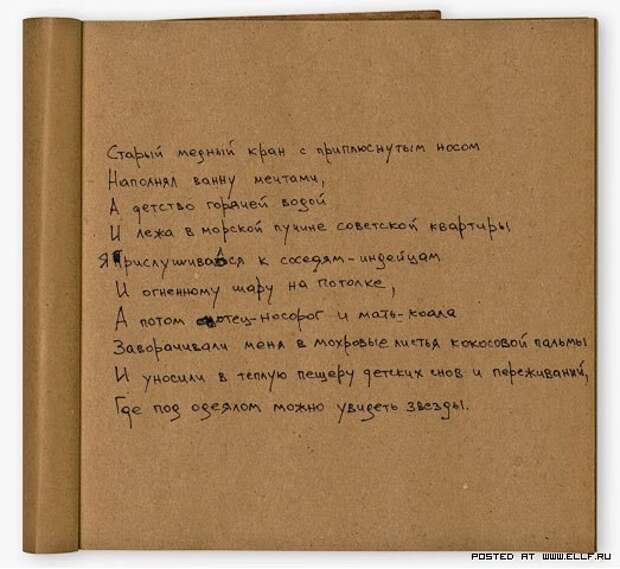 Старый медный кран с приплюснутым носом
Наполнял ванну мечтами,
А детство горячей водой
И лежа в морской пучине советской квартиры
Я прислушивался к соседям-индейцам
И огненному шару на потолке,
А потом отец-носорог и мать-коала
Заворачивали меня в махровые листья кокосовой пальмы
И уносили в теплую пещеру детских снов и переживаний,
Где под одеялом можно увидеть звезды.
POSTED AT WWW.ELLF.RU